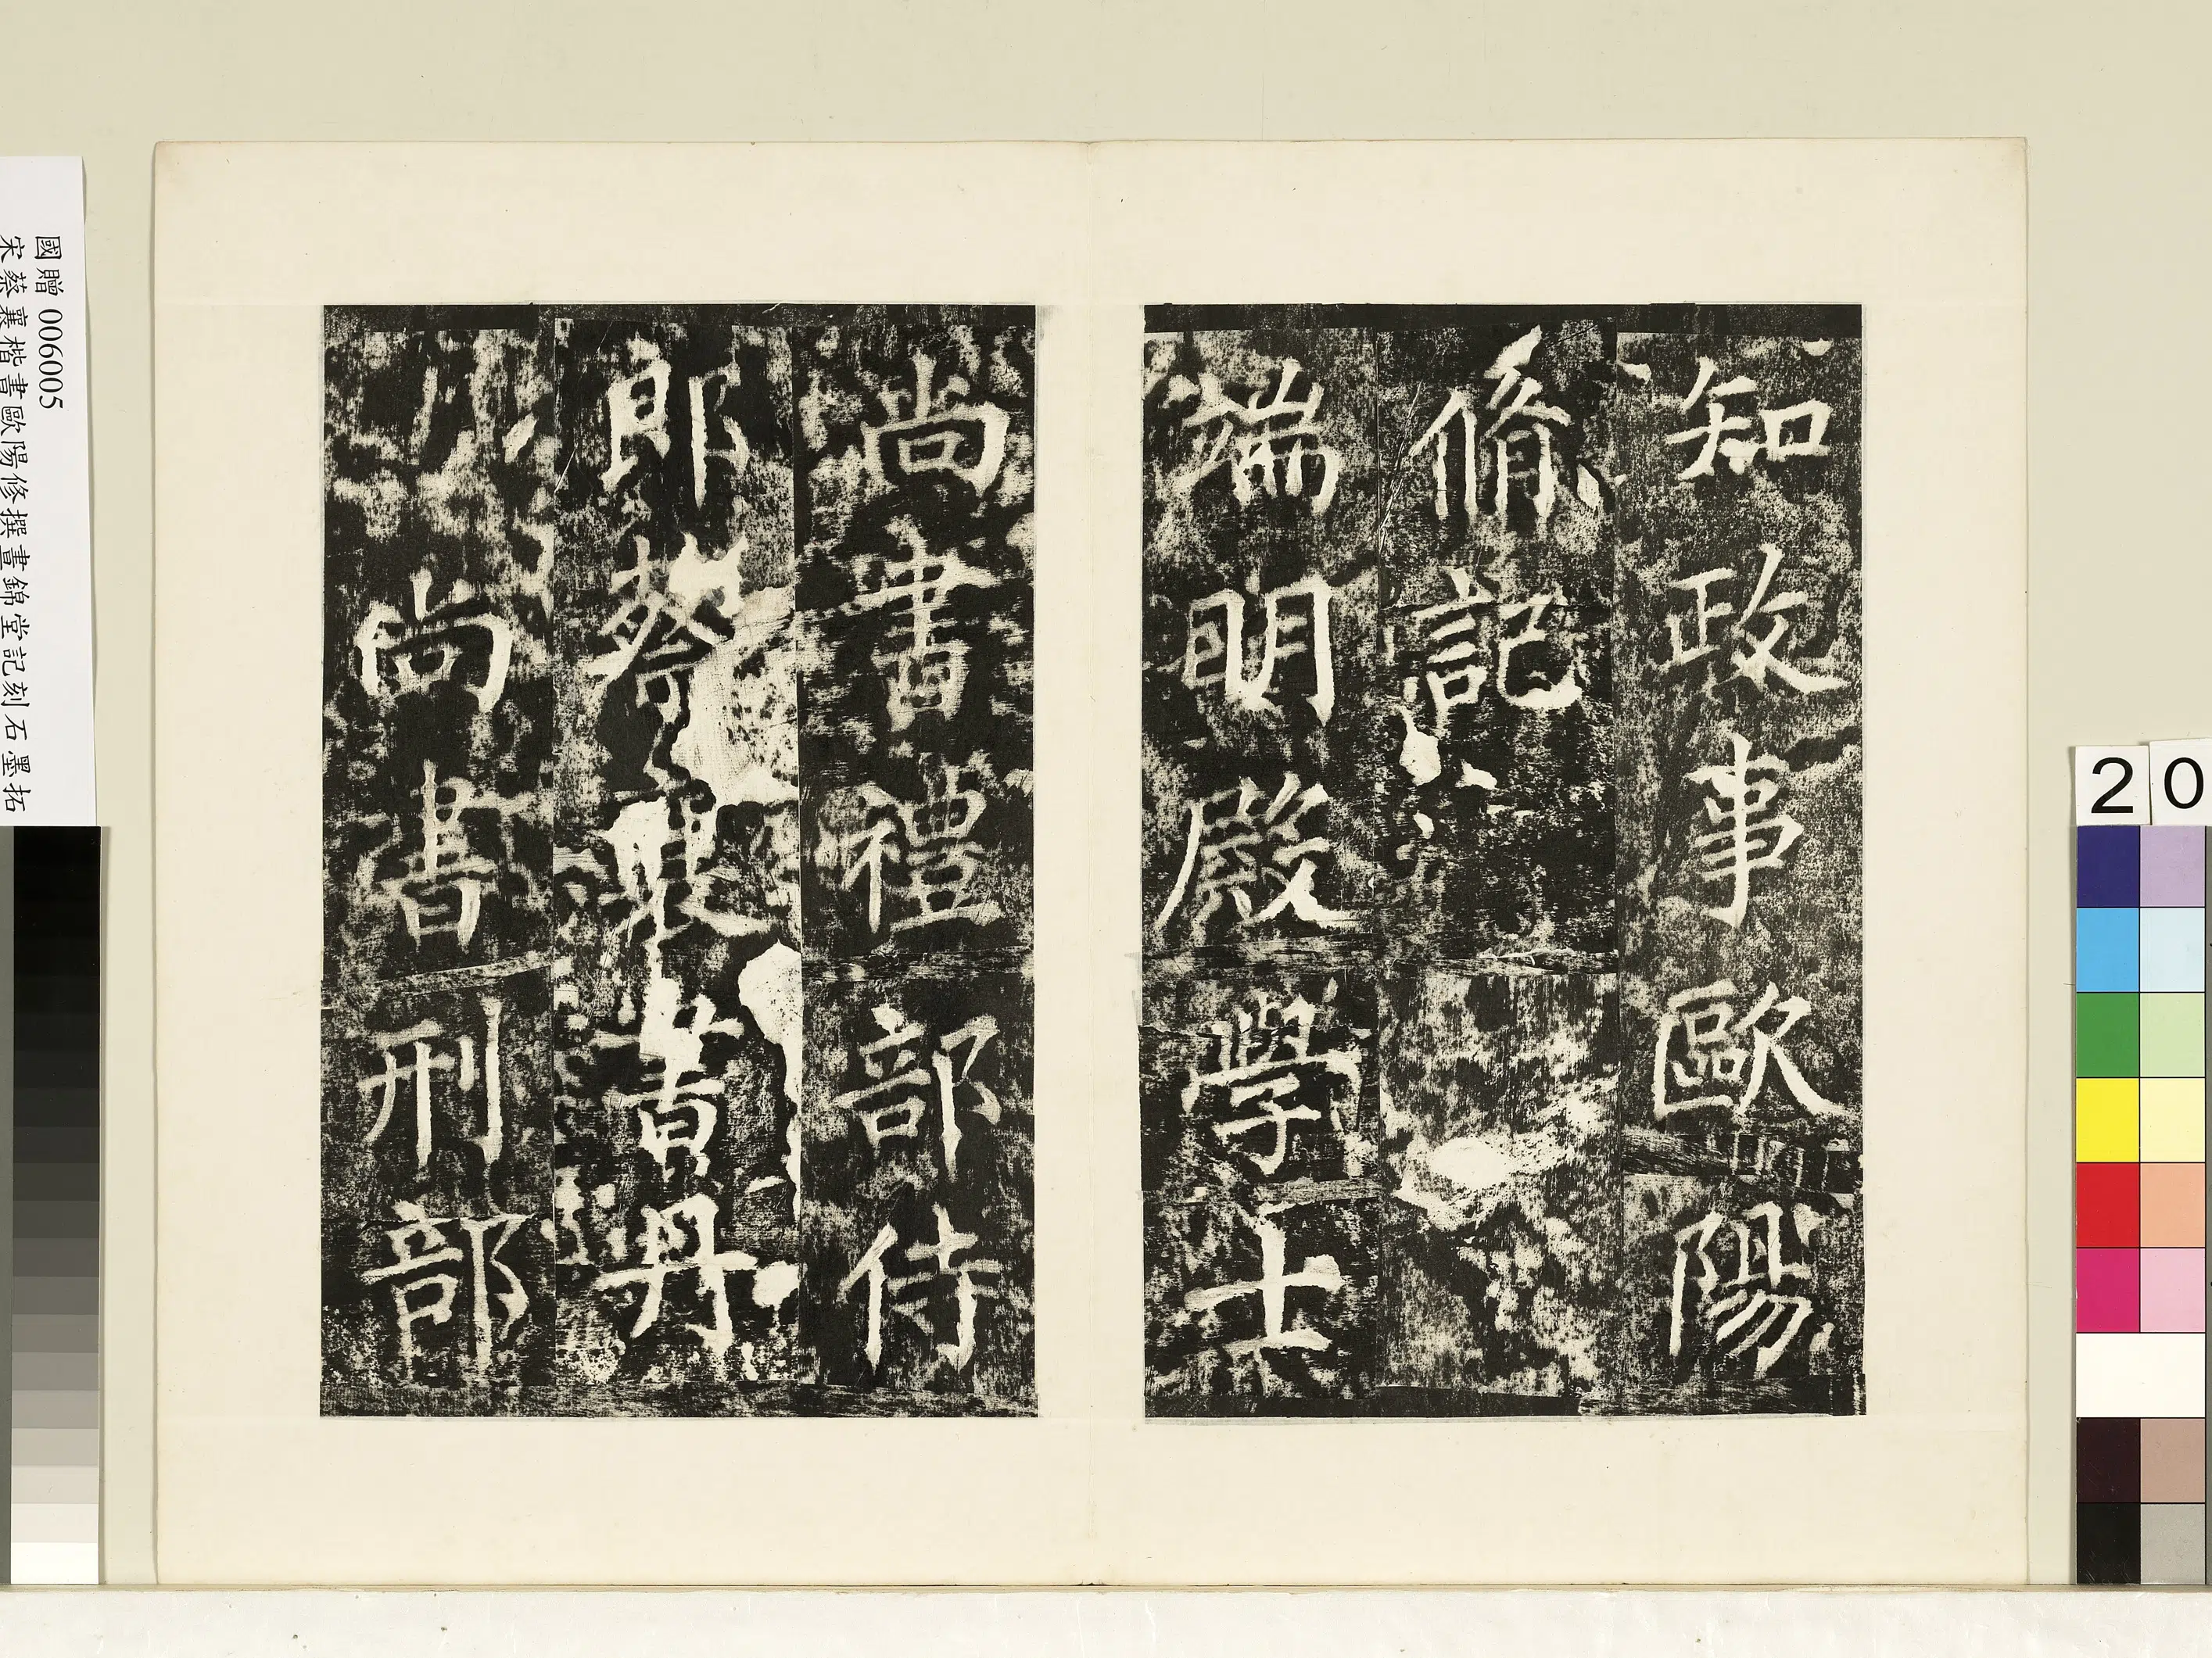 知政事歐陽
脩記
端明殿學士
尚書禮部侍
郎蔡襄書丹
尚書刑部
國贈 006005
宋蔡襄楷書歐陽修撰晝錦堂記刻石墨拓
20